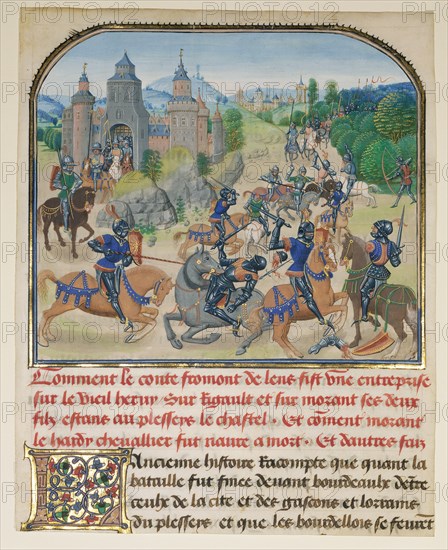 Comment le conte fromont de lens fist vne entreprise
sur le vieil heruy Sur Rigault et sur morant ses deux
filz estans au plesseys le chastel . Et coment morant
le hardy cheuallier fut naure a mort . Et dautres faiz
LAncienne histoire Racompte que quant la
bataille fut finee deuant bourdeaulx detre
ceulx de la cite et des gascons et lorrains
du plesseys et que les bourdellois se feuret